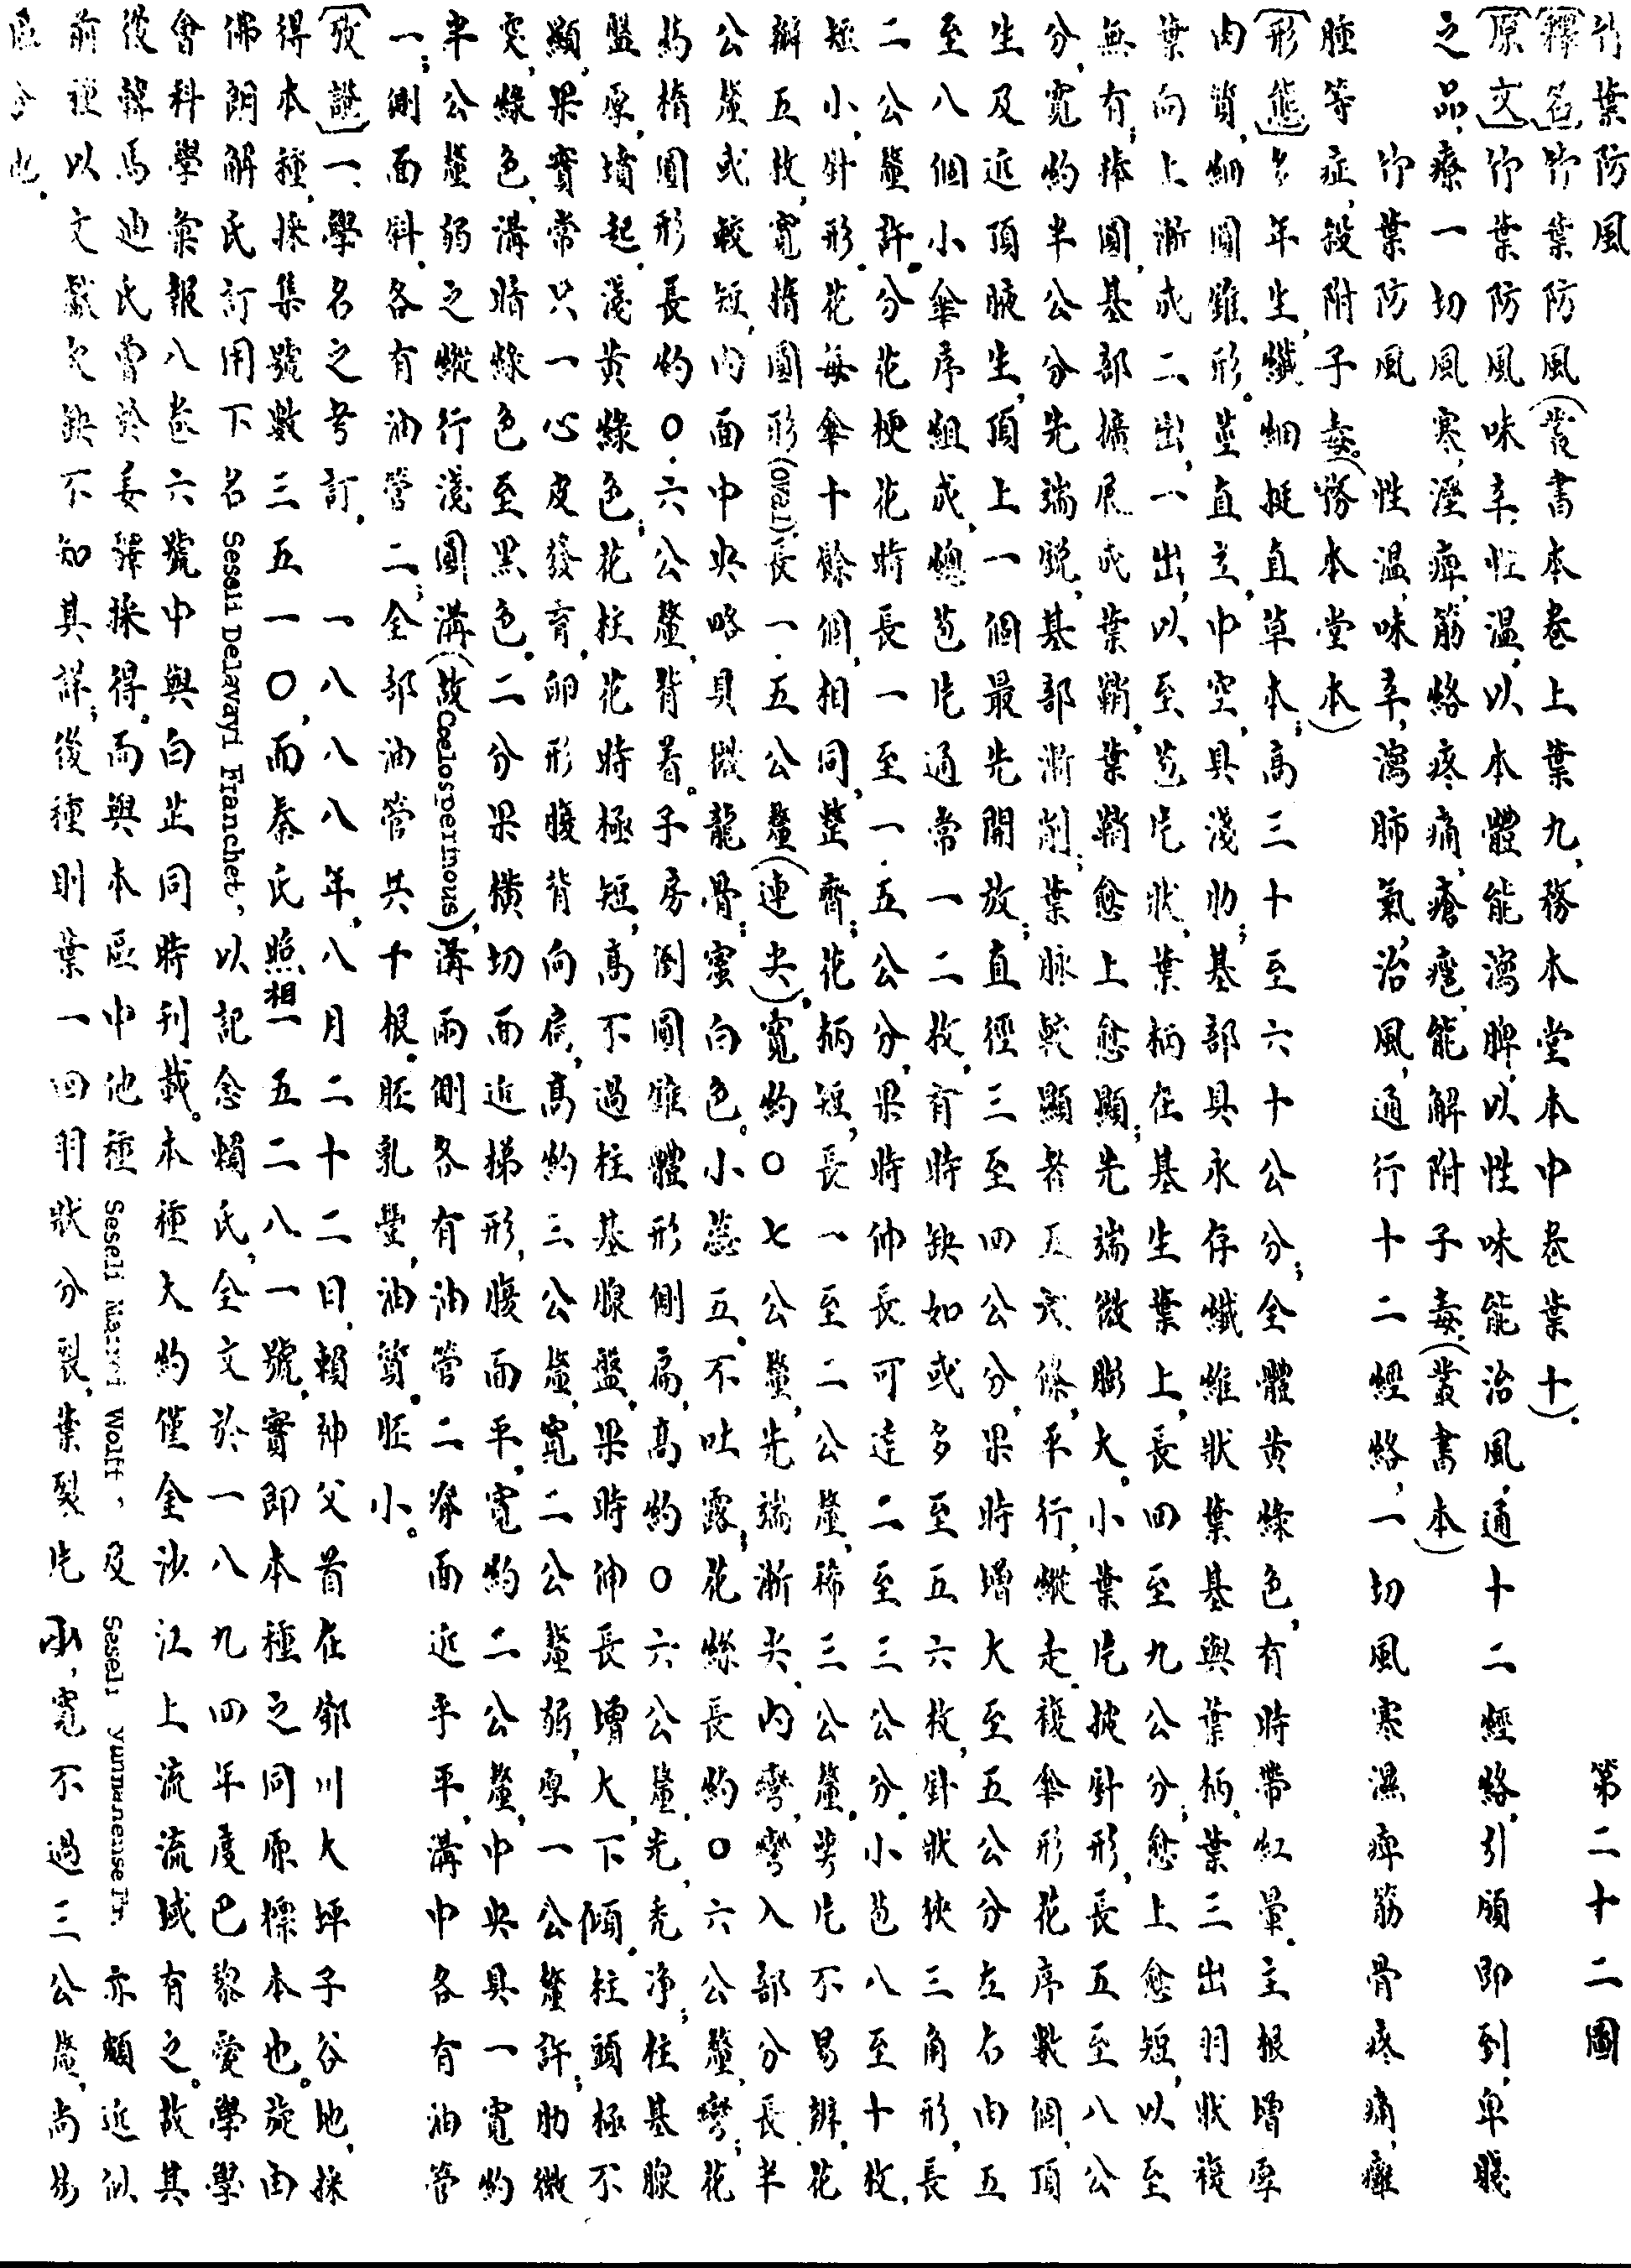 竹葉防風　第二十二圖
〔釋名〕竹葉防風（叢書本卷上葉九，務本堂本中卷葉十）。
〔原文〕竹葉防風，味辛，性温，以本體能瀉脾，以性味能治風，通十二經絡，引頭即到，卑賤
之品，療一切風寒，溼痺，筋絡疼痛，瘡痙，能解附子毒，（叢書本）
竹葉防風　性温，味辛，瀉肺氣，治風，通行十二經絡，一切風寒濕痺筋骨疼痛，癱
腫等症，殺附子毒。（務本堂本）
〔形態〕多年生，纖細挺直草本；高三十至六十公分；全體黄綠色，有時帶紅暈。主根增厚
肉質，細圓錐形。莖直立，中空，具淺肋；基部具永存纖維狀葉基與葉柄。葉三出羽狀複
葉，向上漸成二出，一出，以至苞片狀，葉柄在基生葉上，長四至九公分；愈上愈短，以至
無有；捧圓，基部擴展成葉鞘，葉鞘愈上愈顯；先端微膨大。小葉片披針形，長五至八公
分，寬約半公分，先端銳，基部漸削；葉脉較顯者五六條，平行，縱走。複傘形花序數個，頂
生及近頂腋生，頂上一個最先開放；直徑三至四公分，果時增大至五公分左右，由五
至八個小傘序組成，總苞片通常一，二枚，有時缺如或多至五六枚，針狀狹三角形，長
二公釐許。分花梗花時長一至一.五公分，果時伸長可達二至三公分。小苞八至十枚，
短小，針形。花每傘十餘個，相同，整齊；花柄短，長一至二公釐，稀三公釐。萼片不易辨，花
瓣五枚，寬橢圓形(oval)，長一.五公釐（連尖），寬約〇.七公釐，先端漸尖，内彎，彎入部分長半
公釐或較短，内面中央略具微龍骨；蜜白色。小蕊五。不吐露；花絲長約〇.六公釐，彎；花
药橢圓形，長約〇.六公釐，背着。子房倒圓錐體形，側扁，高約〇.六公釐，光，禿净；柱基腺
盤厚，墳起，淺黄綠色；花柱花時極短，高不過柱基腺盤，果時伸長增大，下傾。柱頭極不
顯，果實常只一心皮發育，卵形，腹背向扁，高約三公釐，寬二公釐弱，厚一公釐許；肋微
突，綠色，溝暗綠色至黑色。二分果橫切面近梯形，腹面平，寬約二公釐，中央具一寬約
半公釐弱之縱行淺圓溝（故Coelospermous），溝兩側各有油管二，脊面近乎平，溝中各有油管
一；側面斜，各有油管二；全部油管共十根。胚乳豐，油篤。胚小。
〔攷證〕一、學名之考訂，一八八八年，八月二十二日，賴神父首在鄧川大坪子谷地，採
得本種，採集號數三五一〇，而秦氏照相一五二八一號，實即本種之同原標本也。旋由
佛朗解氏訂用下名 Seseli Delavayi Franchet，以記念賴氏，全文於一八九四年度巴黎愛學學
會科學彙報八卷六號中與白芷同時刊載。本種大約僅金沙江上流流域有之。故其
後韓馬迪氏曾於麦鐸採得。而與本區中他種 Seseli Mairei Wolff，及 Seseli yunnanense Fr. 亦頗近似
前種以文獻欠缺不知其詳；後種則葉一四羽狀分裂，葉裂片小，寬不過三公釐，尚易
區分也。